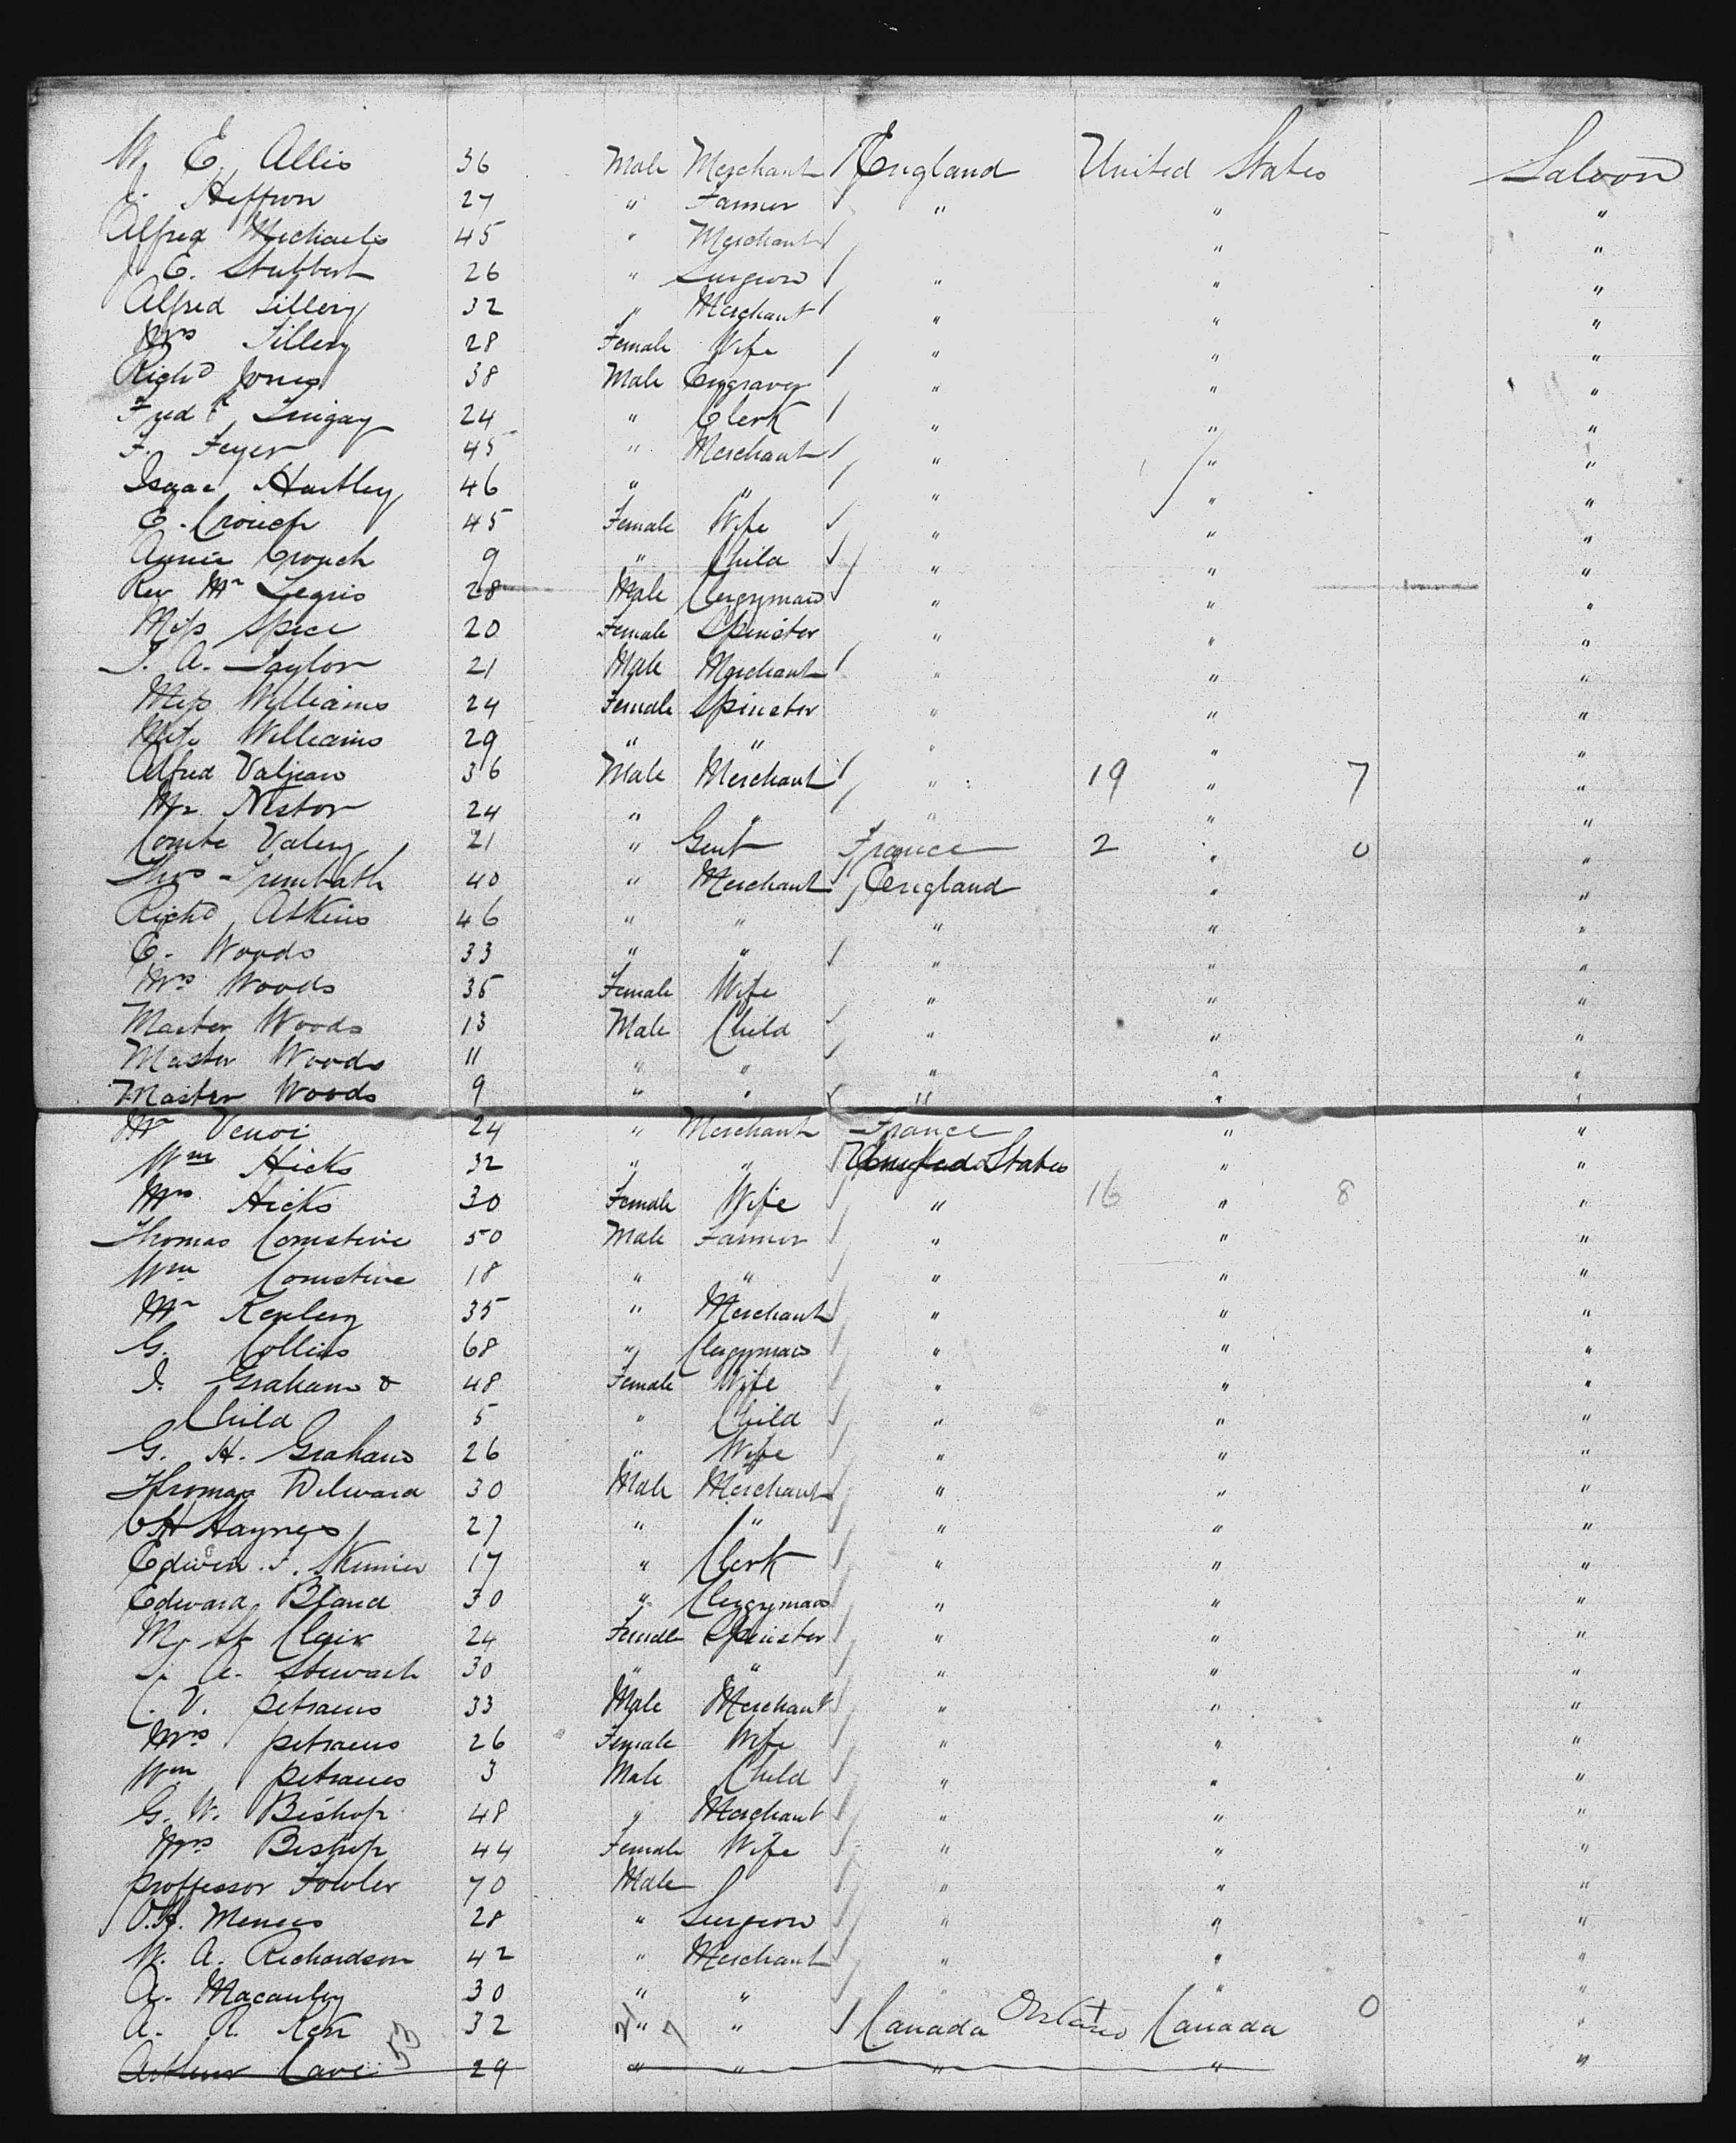 W. E. Allis 36 Male Merchant England United States Saloon
J. Heffron 27 " Farmer " " "
Alfred Michaelis 45 " Merchant " "
J. E. Stubbert 26 " Surgeon " " "
Alfred Tillery 32 " Merchant " " "
Mrs Tillery 28 Female Wife " " "
Richd Jones 38 Male Engraver " " "
Fredk 24 " Clerk " " "
F. Feyer 45 " Merchant " " "
Isaac Hartley 46 " " " " "
E. Crouch 45 Female Wife " " "
Annie Crouch 9 " Child " " "
Rev Mr Legris 28 Male Clergyman " " "
Miss Spice 20 Female Spinster " " "
J. A. Taylor 21 Male Merchant " " "
Miss Williams 24 Female Spinster " " "
Miss Williams 29 " " " " "
Alfred Valjean 36 Male Merchant " 19 " 7 "
Mr Nestor 24 " " " " "
Comte Valery 21 " Gent France 2 " 0 "
Thos Trembath 40 " Merchant England " "
Richd Atkins 46 " " " " "
E. Woods 33 " " " " "
Mrs Woods 35 Female Wife " " "
Master Woods 13 Male Child " " "
Master Woods 11 " " " " "
Master Woods 9 " " " " "
Mr Venoi 24 " Merchant France " "
Wm Hicks 32 " " United States " "
Mrs Hicks 30 Female Wife " 16 " 8 "
Thomas Comstive 50 Male Farmer " " "
Wm Comstive 18 " " " " "
Mr Kenley 35 " Merchant " " "
G. Collins 68 " Clergyman " " "
J. Graham & 48 Female Wife " " "
Child 5 " Child " " "
G. H. Graham 26 " Wife " " "
Thomas Dilward 30 Male Merchant " " "
Haynes 27 " " " " "
Edwin F. Skinner 17 " Clerk " " "
Edward Bland 30 " Clergyman " " "
M. St Clair 24 Female Spinster " " "
A. Stewart 30 " " " " "
C. V. petraeus 33 Male Merchant " " "
Mrs petraeus 26 Female Wife " " "
Wm petraeus 3 Male Child " " "
G. W. Bishop 48 " Merchant " " "
Mrs Bishop 44 Female Wife " " "
proffessor Fowler 70 Male " " "
Menees 28 " Surgeon " " "
W. A. Richardson 42 " Merchant " " "
A. Macauley 30 " " " " "
A. R. Kerr 32 " " Canada Ontario Canada 0 "
53
Arthur Cave 29 " " " " "